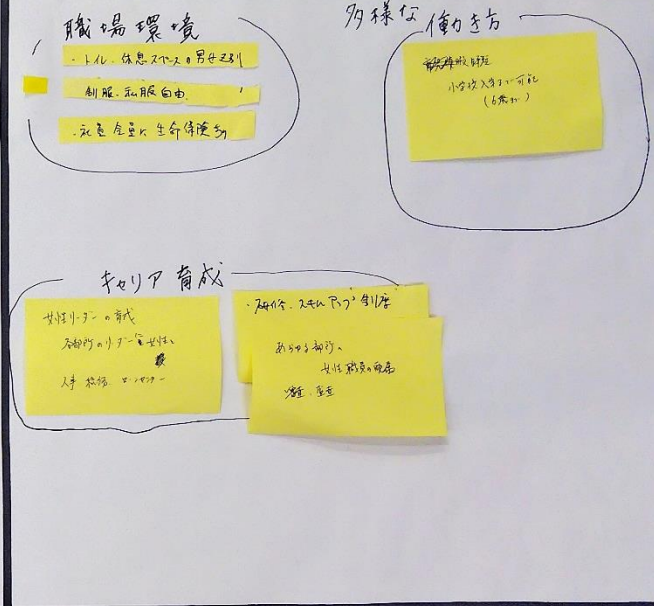 職場環境
・トイレ、休息スペースの男女区別
制服、私服自由
・社員全員に生命保険
多様な働き方
時短
小学校入学まで可能
(6歳まで)
キャリア育成
女性リーダーの育成
各部所のリーダーを女性に
人事
・研修、スキルアップ制度
あらゆる部所に
女性職員の配属